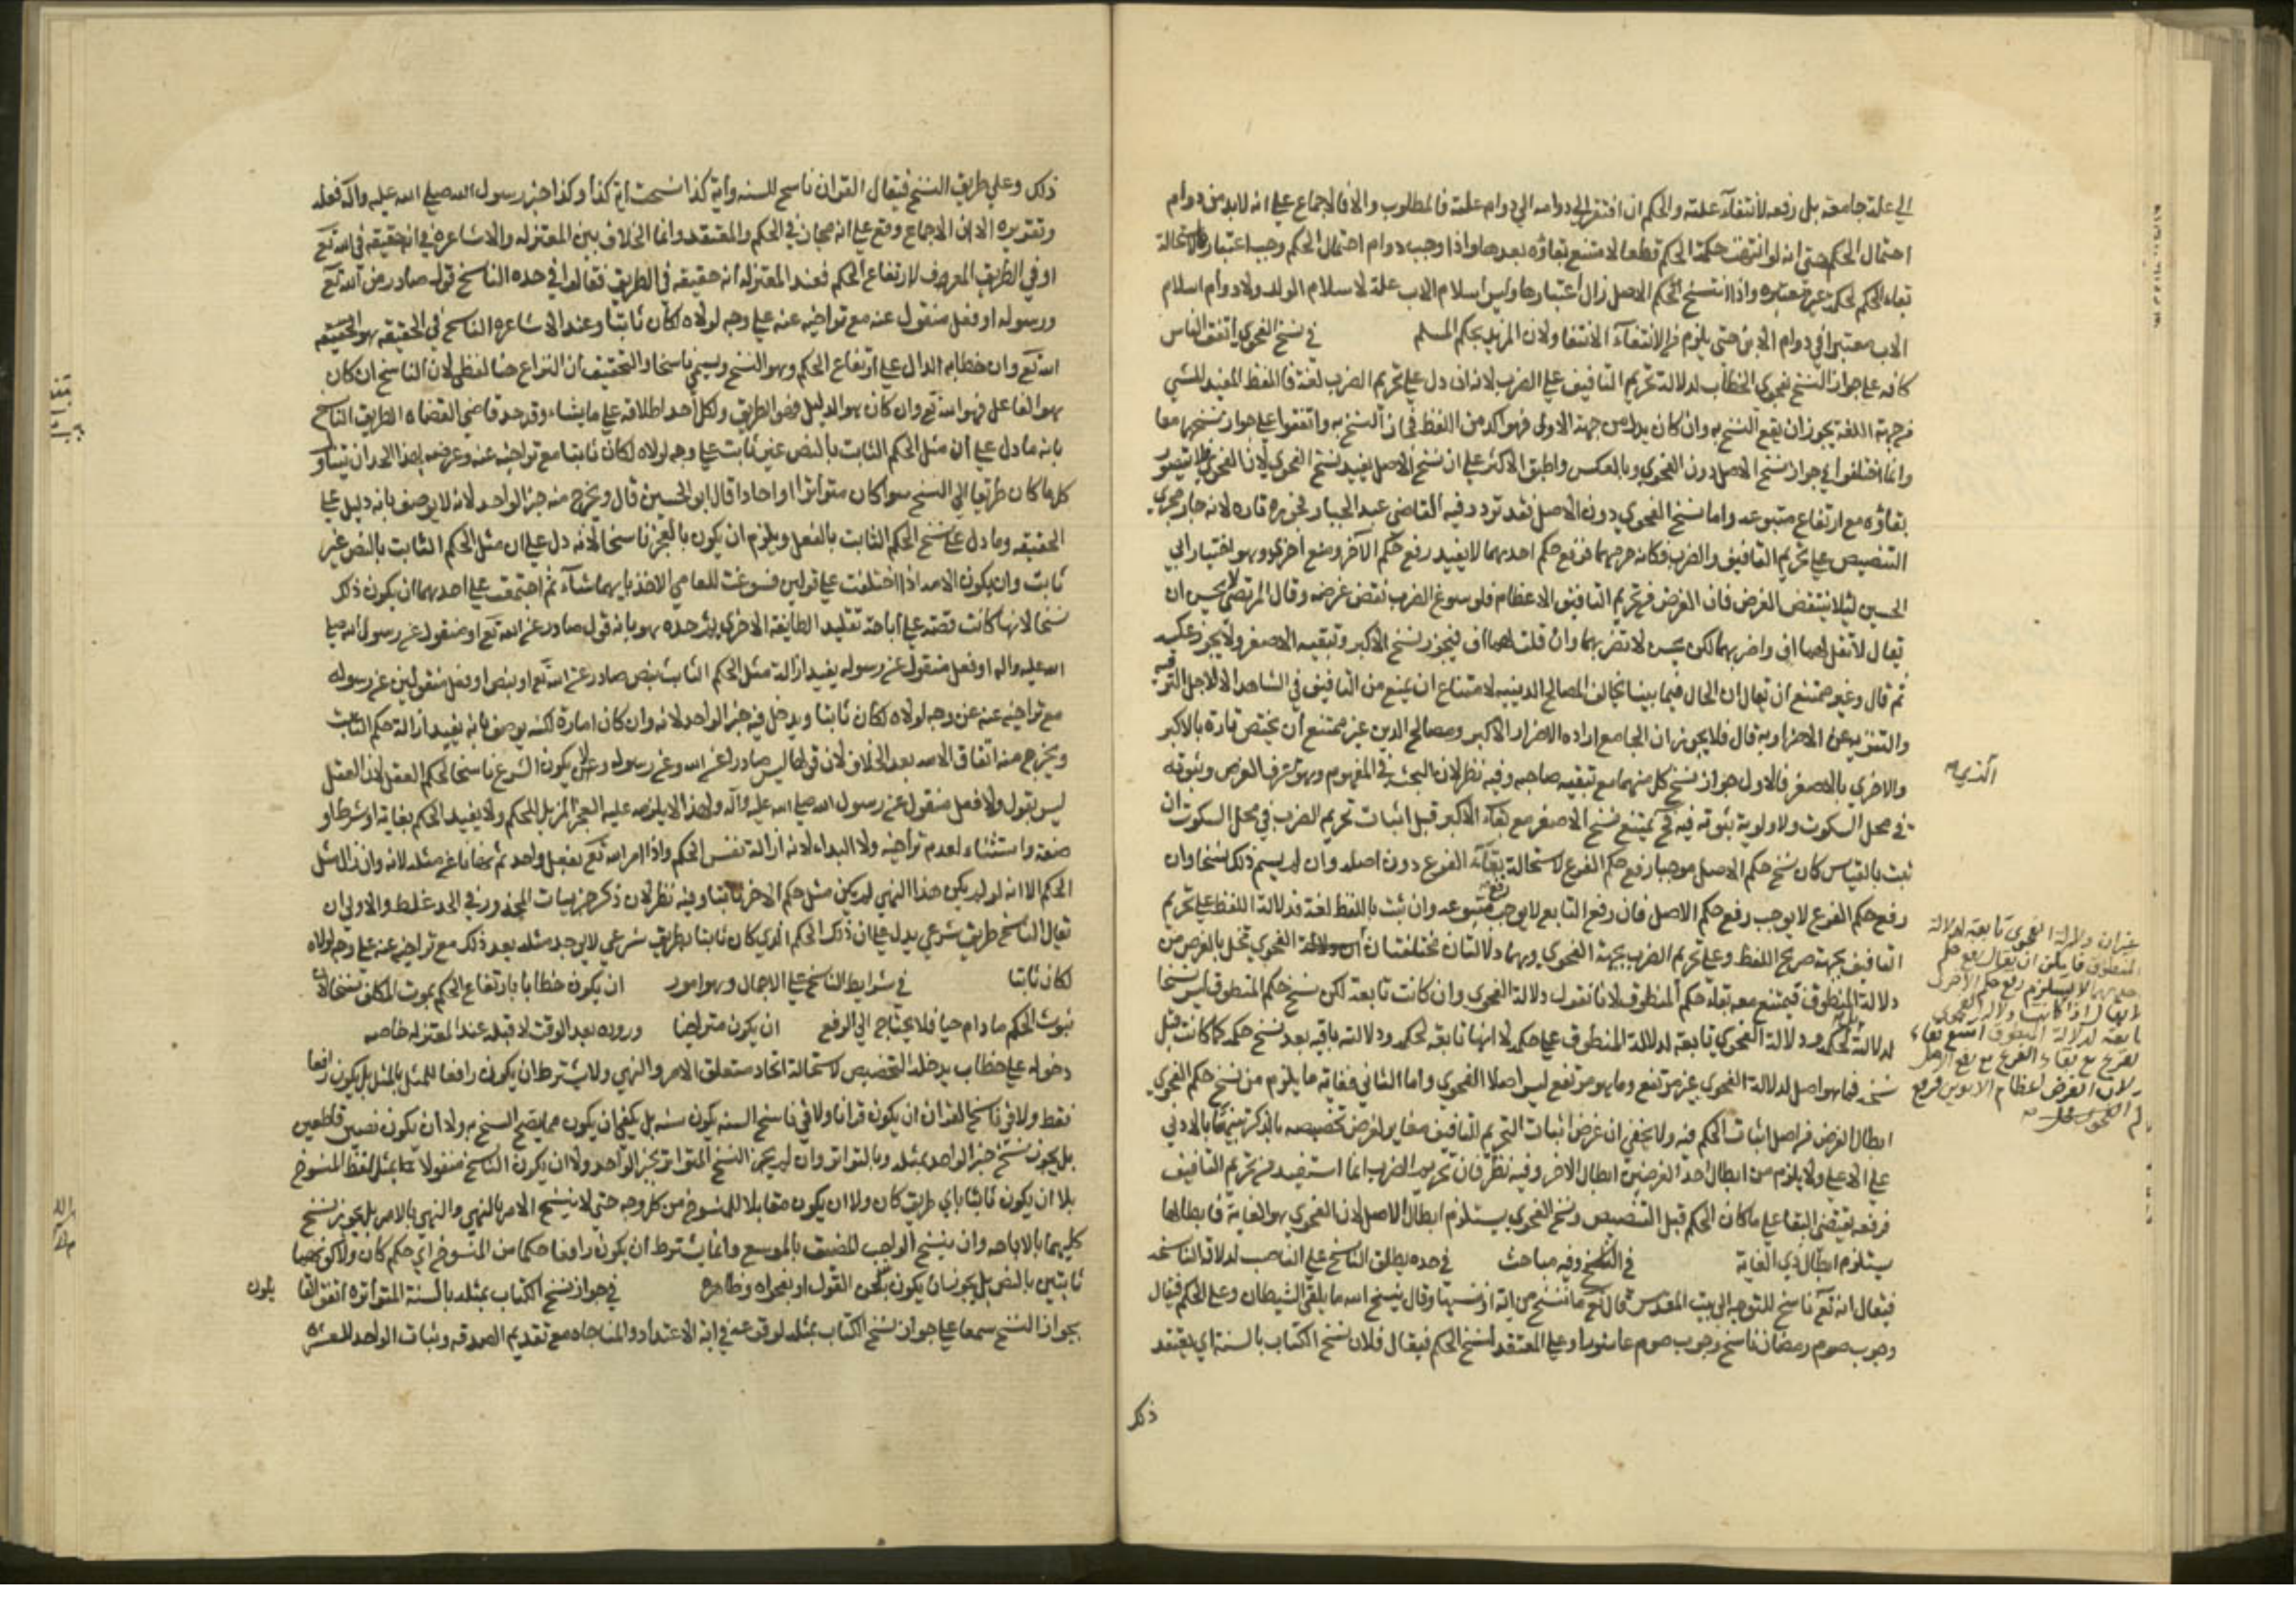 الى علة جامعة بل رفعه لانتفاء علته والحكم ان افتقر الى دوامه الى دوام علته فالمطلوب والا فالاجماع على انه لا بد من دوام
احتمال الحكم حتى انه لو انتفت حكمة الحكم قطعا لامتنع بقاؤه بعدها واذا وجب دوام احتمال الحكم وجب اعتبارها
بقاء الحكم لحكمة غير معتبره واذا انتسخ الحكم الاصل زال اعتبارها وليس اسلام الاب علة لاسلام الولد ولا دوام اسلام
الاب معتبرا في دوام الابن حتى يلزم من الانتفاء الانتفا ولان المرتد بحكم المسلم في نسخ الفحوى اتفق الناس
كافه على جواز النسخ بفحوى الخطاب لدلالة تحريم التافيف على الضرب لانه ان دل على تحريم الضرب لغة فاللفظ المفيد للشي
من جهة اللغة يجوز ان يقع النسخ به وان كان يدل من جهة الاولى فهو اكد من اللفظ فجاز النسخ به واتفقوا على جواز نسخهما معا
وانما اختلفوا في جواز نسخ الاصل دون الفحوى وبالعكس واطبق الاكثر على ان نسخ الاصل يفيد نسخ الفحوى لان الفحوى لا يتصور
بقاؤه مع ارتفاع متبوعه واما نسخ الفحوى دون الاصل فقد تردد فيه القاضي عبد الجبار فجوزه تاره لانه جار مجرى
التنصيص على تحريم التافيف والضرب فكانه حرمهما فرفع حكم احدهما لا يفيد رفع حكم الآخر ومنع اخرى وهو اختيار ابي
الحسين لئلا ينتقض الغرض فان الغرض من تحريم التافيف الاعظام فلو سوغ الضرب نقض غرضه وقال المرتضى لا يحسن ان
يقال لا تقل لهما اف واضربهما لكن يحسن لا تضربهما وان قلت لهما اف فيجوز نسخ الاكبر وتبقيه الاصغر ولا يجوز عكسه
ثم قال وغير ممتنع ان يقال ان الحال فيما بيننا يخالف المصالح الدينيه لامتناع ان يمنع من التافيف في الشاهد الا لاجل الترفيه
والتنزيه عن الاضرار به قال فلا يجوز ان الجامع اراده الاضرار الاكبر ومصالح الدين غير ممتنع ان يختص تارة بالاكبر
والاخرى بالاصغر فالاول جواز نسخ كل منهما مع تبقيه صاحبه وفيه نظر لان البحث في المفهوم وهو تعرف الغرض وثبوته
في محل السكوت ولاولوية ثبوته فيه فح يمتنع نسخ الاصغر مع بقاء الاكبر قبل اثبات تحريم الضرب في محل السكوت ان
ثبت بالقياس كان نسخ حكم الاصل موجبا رفع حكم الفرع لاستحالة بقاء الفرع دون اصله وان لم يسم ذلك نسخا وان
رفع حكم الفرع لا يوجب رفع حكم الاصل فان رفع التابع لا يوجب رفع متبوعه وان ثبت باللفظ لغة فدلالة اللفظ على تحريم
التافيف بجهة صريح اللفظ وعلى تحريم الضرب بجهة الفحوى وهما دلالتان مختلفتان الفحوى تخل بالغرض من
دلالة المنطوق فيمتنع معه بقاء حكم المنطوق لانا نقول دلالة الفحوى وان كانت تابعة لكن نسخ حكم المنطوق ليس نسخا
لدلالته لحكمه ودلالة الفحوى تابعة لدلالة المنطوق على حكمه لا انها تابعة لحكمه ودلالته باقيه بعد نسخ حكمه كما كانت قبل
نسخه فما هو اصل لدلالة الفحوى غير مرتفع وما هو مرتفع ليس اصلا للفحوى واما الثاني فغايته ما يلزم من نسخ حكم الفحوى
ابطال الغرض من اصل اثبات الحكم فيه ولا يخفى ان غرض اثبات التحريم للتافيف مغاير لغرض تخصيصه بالذكر تنبيها بالادنى
على الاعلى ولا يلزم من ابطال احد الغرضين ابطال الاخر وفيه نظر فان تحريم الضرب انما استفيد من تحريم التافيف
فرفعه يقتضي البقا على ما كان الحكم قبل التنصيص ونسخ الفحوى يستلزم ابطال الاصل لان الفحوى هو الغاية فابطالها
يستلزم ابطال ذي الغاية في الناسخ وفيه مباحث في حده يطلق الناسخ على الناصب لدلالة الناسخه
فيقال انه تع ناسخ للتوجه الى بيت المقدس قال تع ما ننسخ من اية او ننسها وقال فينسخ الله ما يلقى الشيطان وعلى الحكم فيقال
وجوب صوم رمضان ناسخ وجوب صوم عاشورا وعلى المعتقد لنسخ الحكم فيقال فلان نسخ الكتاب بالسنة اي يعتقد
ذلك
غير ان دلالة الفحوى تابعة لدلالة
المنطوق فلا يمكن ان يقال رفع حكم
احدهما لا يستلزم رفع حكم الاخر
لا يقال اذا كانت دلالة الفحوى
تابعة لدلالة المنطوق امتنع بقاء
الفرع مع رفع الاصل
ولان الغرض اعظام الابوين فرفع
حكم الفحوى
ذلك وعلى طريق النسخ فيقال القران ناسخ للسنه وآية كذا نسخت آية كذا وكذا خبر رسول الله صلى الله عليه وآله فعله
وتقريره الا ان الاجماع وقع على انه مجاز في الحكم والمعتقد وانما الخلاف بين المعتزله والاشاعره في انه حقيقه في الله تع
او في الطريق المعرف لارتفاع الحكم فعند المعتزله انه حقيقه في الطريق فقالوا في حده الناسخ قول صادر من الله تع
ورسوله او فعل منقول عنه مع تراخيه عنه على وجه لولاه لكان ثابتا وعند الاشاعره الناسخ في الحقيقه هو
الله تع وان خطابه الدال على ارتفاع الحكم وهو النسخ ويسمى ناسخا والتحقيق ان النزاع هنا لفظي لان الناسخ ان كان
هو الفاعل فهو الله تع وان كان هو الدليل فهو الطريق ولكل احد اطلاقه على ما يشاء وقد حد قاضي القضاه الطريق الناسخ
بانه ما دل على ان مثل الحكم الثابت بالنص غير ثابت على وجه لولاه لكان ثابتا مع تراخيه عنه وغرضه بهذا الحد ان يتناول
كل ما كان طريقا الى النسخ سواء كان متواترا او احادا قال ابو الحسين قال ويخرج منه خبر الواحد لانه لا يوصف بانه دليل على
الحقيقه وما دل على نسخ الحكم الثابت بالفعل ويلزم ان يكون العجز ناسخا لانه دل على ان مثل الحكم الثابت بالنص غير
ثابت وان يكون الامه اذا اختلفت على قولين فسوغت للعامي الاخذ بايهما شاء ثم اجتمعت على احدهما ان يكون ذلك
نسخا لانها كانت على اباحة تقليد الطايفة الاخرى ثم حده هو بانه قول صادر عن الله تع او منقول عن رسول الله صلى
الله عليه واله او فعل منقول عن رسوله يفيد ازالة مثل الحكم الثابت بنص صادر عن الله تع او بنص او فعل منقولين عن رسوله
مع تراخيه عنه على وجه لولاه لكان ثابتا ويدخل فيه خبر الواحد لانه وان كان امارة لكنه يوصف بانه يفيد ازالة حكم الثابت
ويخرج منه اتفاق الامه بعد الخلاف لان قولها ليس صادرا عن الله وعن رسوله وعن كون الشرع ناسخا لحكم العقل لان العقل
ليس بقول ولا فعل منقول عن رسول الله صلى الله عليه وآله ولهذا لا يلزمه عليه العجز المزيل للحكم ولا تقييد الحكم بغاية او شرط او
صفة واستثناء لعدم تراخيه ولا البداء لانه ازالة نفس الحكم واذا امر الله تع بفعل واحد ثم نهانا عن مثله لانه وان ازال مثل
الحكم الا انه لو لم يكن هذا النهي لم يكن مثل حكم الاخر ثابتا وفيه نظر لان ذكر جزئيات المحدود في الحد غلط والاولى ان
يقال الناسخ طريق شرعي يدل على ان ذلك الحكم الذي كان ثابتا بطريق شرعي لا يوجد مثله بعد ذلك مع تراخيه عنه على وجه لولاه
لكان ثابتا في شرايط الناسخ على الاجمال وهو امور ان يكون خطابا بارتفاع الحكم بموت المكلف
ثبوت الحكم ما دام حيا فلا يحتاج الى الرفع ان يكون متراخيا وروده بعد الوقت لا قبله عند المعتزله خاصه
دخوله على خطاب يدخله التخصيص لاستحالة اتحاد متعلق الامر والنهي ولا يشترط ان يكون رافعا للمثل بالمثل بل يكون رافعا
فقط ولا في ناسخ القران ان يكون قرانا ولا في ناسخ السنه يكون سنه بل يكفي ان يكون مما يصح النسخ به ولا ان يكون نصين قاطعين
بل يجوز نسخ خبر الواحد بمثله وبالتواتر وان لم يجز النسخ المتواتر بخبر الواحد ولا ان يكون الناسخ منقولا بمثل لفظ المنسوخ
بل ان يكون ثابتا باي طريق كان ولا ان يكون مقابلا للمنسوخ من كل وجه حتى لا ينسخ الامر بالنهي والنهي بالامر بل يجوز نسخ
كليهما بالاباحه وان ينسخ الواجب المضيق بالموسع وانما يشترط ان يكون رافعا حكما من المنسوخ اي حكم كان ولا كونهما
ثابتين بالنص بل يجوز ان يكون بلحن القول او بفحواه وظاهره في جواز نسخ الكتاب بمثله بالسنة المتواتره اتفق القا
يلون
بجواز النسخ سمعا على جواز نسخ الكتاب بمثله لوقوعه في اية الاعتداد والمناجاه مع تقديم الصدقه وثبات الواحد للعشره